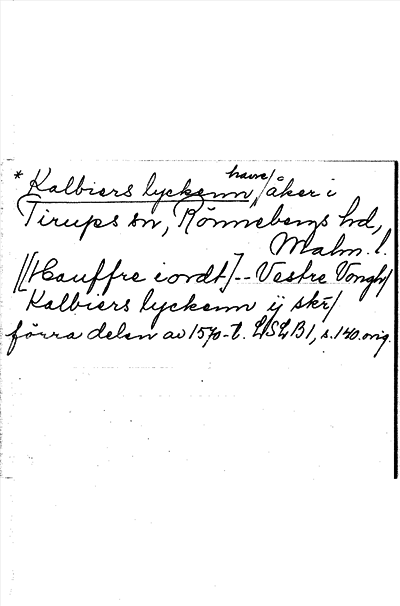 * Kalbiers lyckenn, havre/åker i
Tirups sn, Rönnebergs hd,
Malm. l.
/[Hauffre iordt] -- Vestre Vongh/
Kalbiers lyckenn ij skr/
förra delen av 1570-t. LJSLB1, s.140.orig.